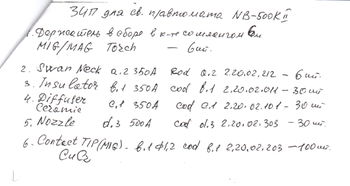 ЗИП для св. п/автомата NB-500К II
1. Держатель в сборе в к-те со шлангом 6м
MIG/MAG Torch — 6шт.
2. Swan Neck a.2 350A cod a.2 2.20.02.212 - 6шт.
3. Insulator b.1 350A cod b.1 2.20.02.011 - 30шт
4. Diffuser c.1 350A cod c.1 2.20.02.101 - 30шт
Ceramic
5. Nozzle d.3 500A cod d.3 2.20.02.303 - 30шт
6. Contact TIP(MIG). b.1 Ф1,2 cod b.1 2.20.02.203 - 100шт.
CuCr